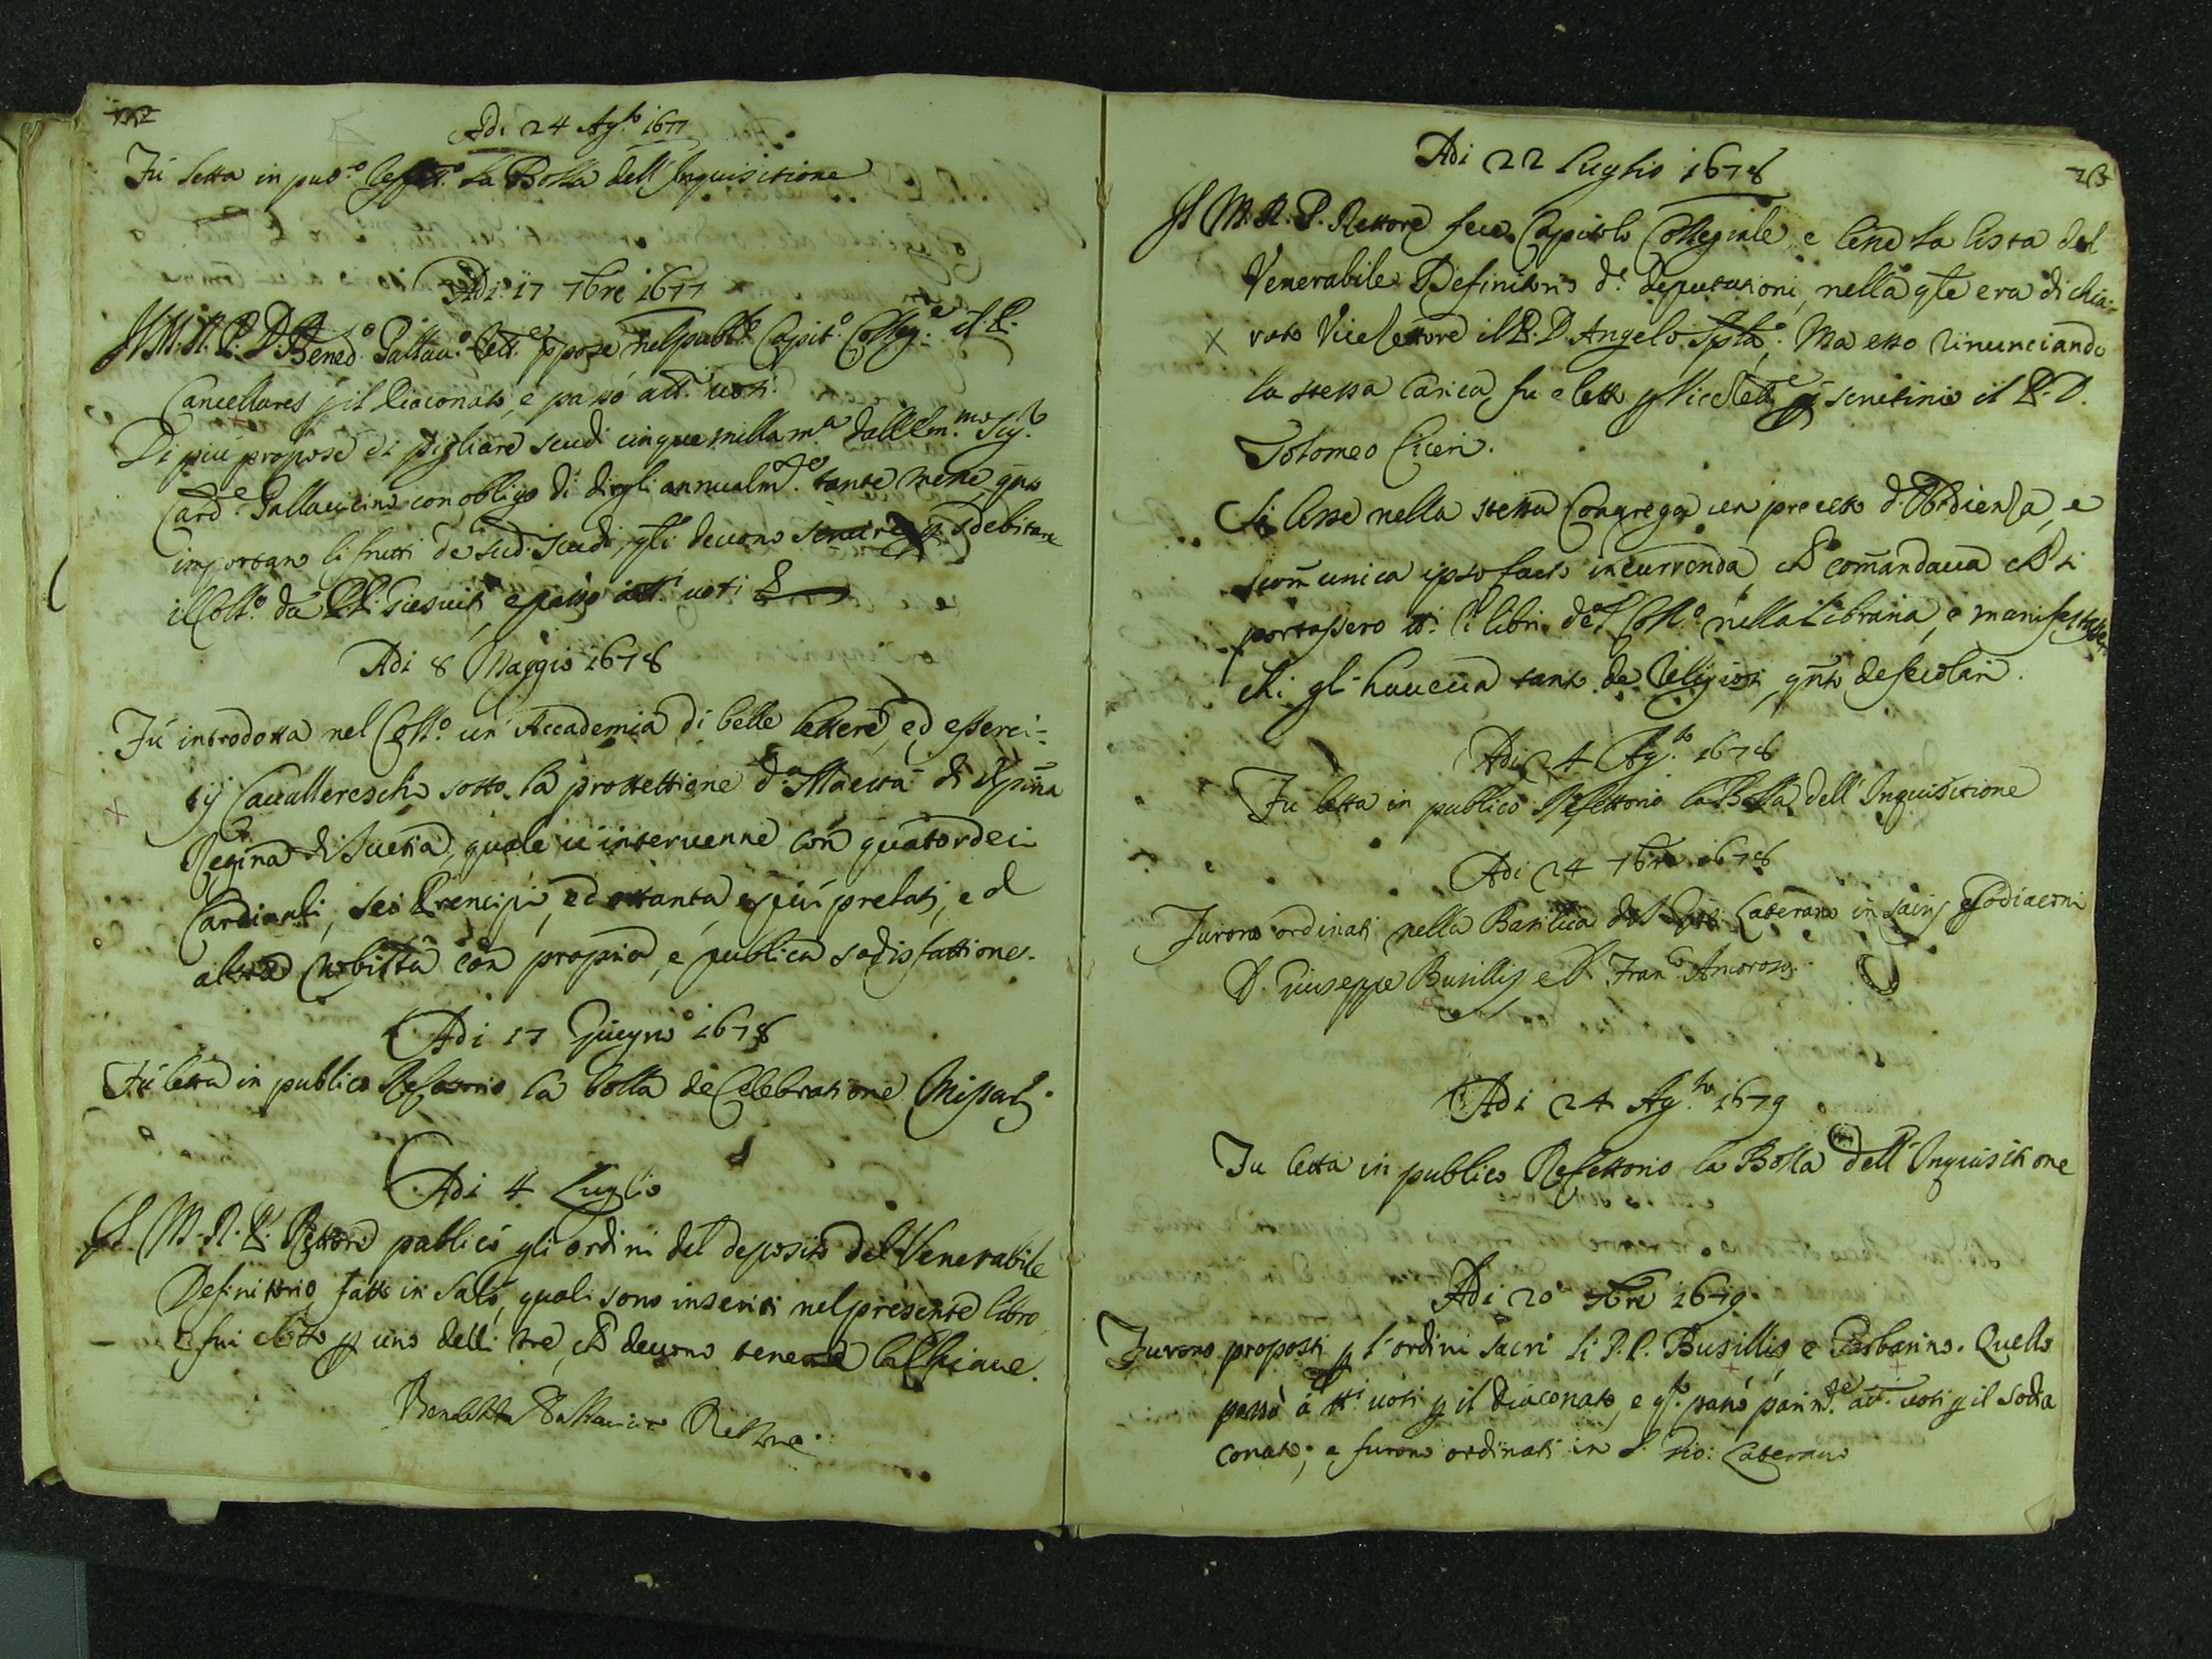 Adi 24 Ag.to 1677
Fù letta in pub.o Reffett.o la Bolla dell'Inquisitione
Adi 17 7bre 1677
Il M. R. P. D. Bened.o Pallau.o Rett.e ppose nel publ.o Capit.o Colleg.e il P.
Cancellares p il Diaconato, e passò att.i uoti.
Di più propose di pigliare scudi cinque milla m.a dall'Em.mo Sig.r
Card.e Pallauicino con obligo di dirgli annualm.te tante messe, qnto
importano li frutti de sud.i scudi, qli deuono p sdebitare
il Coll.o da PP. Giesuiti, e passò att.i uoti
Adi 8 Maggio 1678
Fù introdotta nel Coll.o un'Accademia di belle lettere, ed esserci-
tij Cauallereschi sotto la prottettione d.a Maestà di Xpina
Regina di Suetia, quale ui interuenne con quatordeci
Cardinali, sei Prencipi, ed ottanta, e più prelati, ed
altra nobiltà con propria, e publica sodisfattione.
Adi 17 Giugno 1678
Fù letta in publico Refettorio la bolla de Celebratione Missar.
Adi 4 Luglio
Il M. R. P. Rettore publicò gli ordini del deposito del Venerabile
Definittorio fatto in Salò, quali sono inseriti nel presente libro,
e fui eletto p uno delli tre, che deuono tenere la Chiaue.
Benedetto Pallauicino Rettore.
Adi 22 Luglio 1678
Il M. R. P. Rettore fece Capitolo Collegiale, e lesse la lista del
Venerabile Definitorio d.e deputationi, nella qle era dichia-
X rato ViceRettore il P. D. Angelo Spla; Ma esso rinunciando
la stessa Carica, fu eletto p ViceRett.e p scrutinio il P. D.
Tolomeo Ciceri.
Si lesse nella stessa Congregaz un precetto d'Obedienza, e
scom̃unica ipso facto incurrenda, che com̃andaua che si
portassero tt.i li libri del Coll.o nella libraria, e manifestasse
chi gl'haueua tanto de Religiosi, qnto de secolari.
Adi 24 Ag.to 1678
Fù letta in publico Refettorio la Bolla dell'Inquisitione
Adi 24 7bre 1678
Furono ordinati nella Basilica di S. Gio: Laterano in Sodiaconi
D. Giuseppe Busillis, e D. Fran.co Amoroso.
Adi 24 Ag.to 1679
Fu letta in publico Refettorio la Bolla dell'Inquisitione
Adi 20 7bre 1679
Furono proposti p l'ordini sacri li P.P. Busillis, e Barbarino. Quello
passò à tt.i uoti p il Diaconato, e q.to passò parim.te att.i uoti p il Sodia
conato; e furono ordinati in S. Gio: Laterano